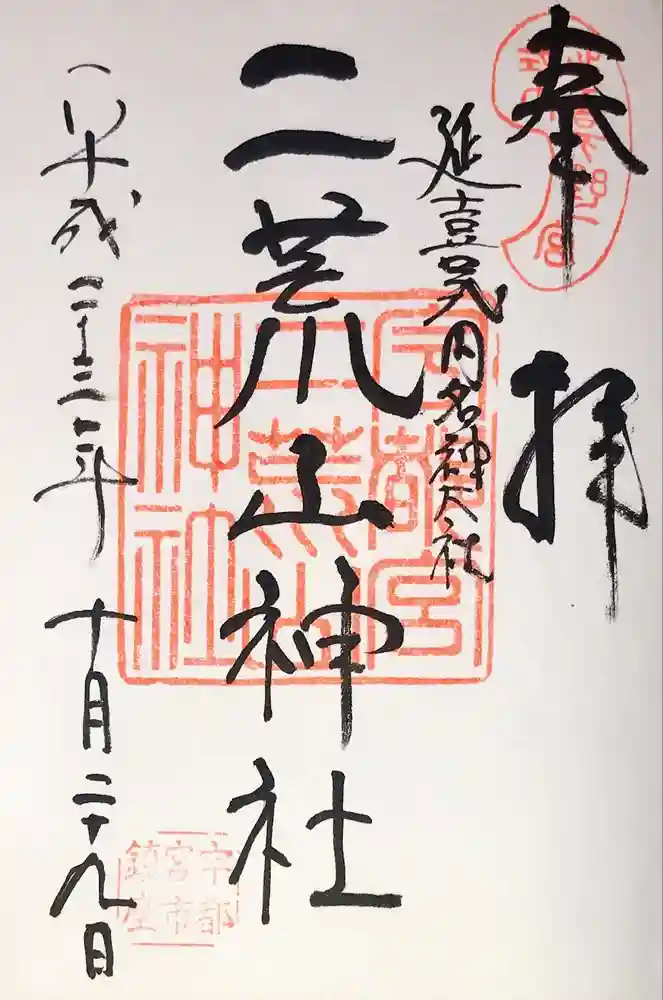 奉拝
延喜式内名神大社
二荒山神社
平成二十三年十月二十九日
宇都宮
二荒山
神社
宇都
宮市
鎮座